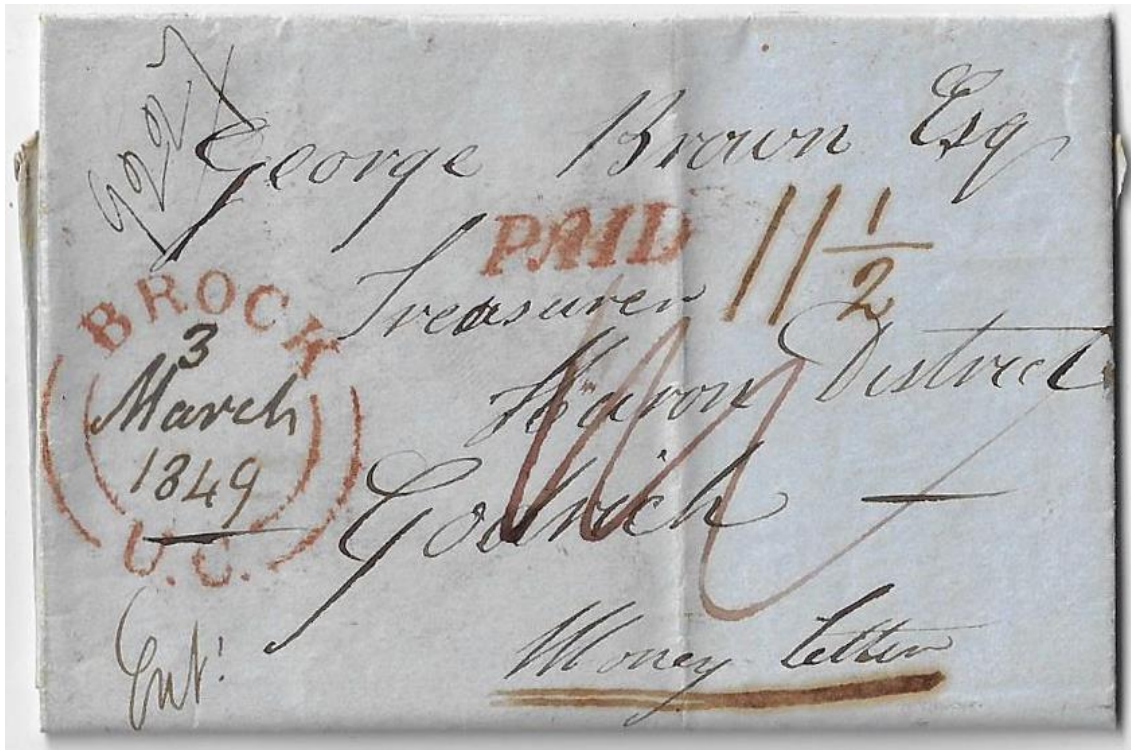 George Brown Esq
PAID 11 1/2
Treasurer
Huron District
Godrich —
Money letter
BROCK
3
March
1849
U.C.
Ent!